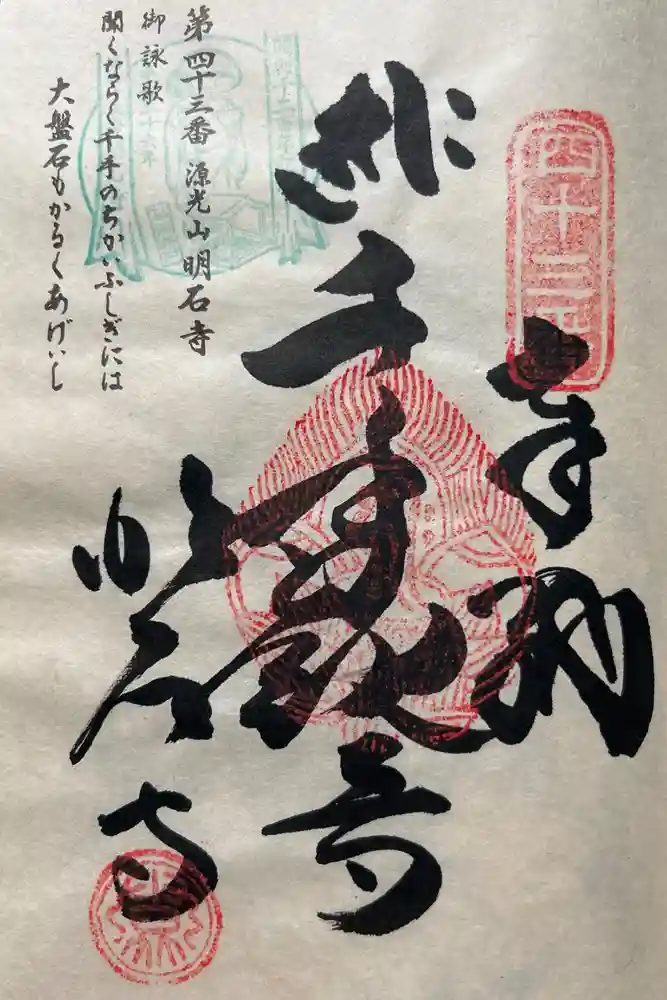 四十三番
奉納
千手観音
明石寺
第四十三番 源光山明石寺
御詠歌
聞くならく千手のちかいふしぎには
大盤石もかるくあげいし